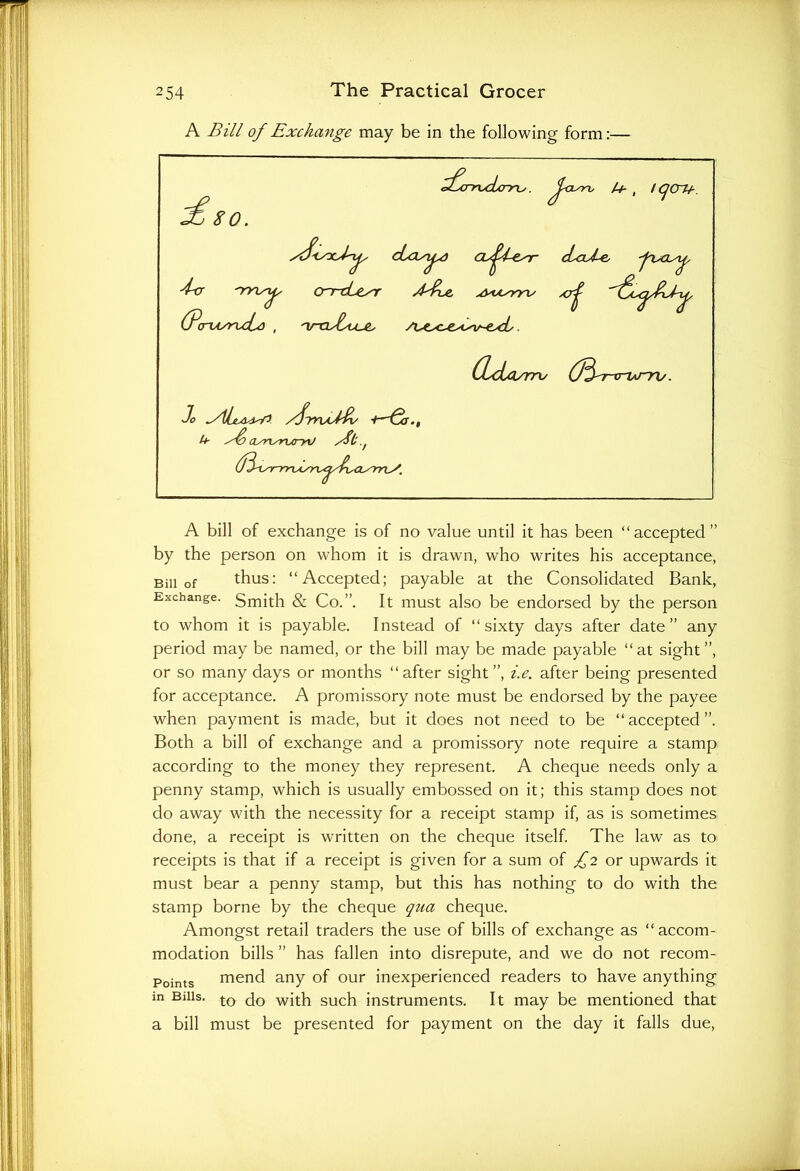 254 The Practical Grocer
A Bill of Exchange may be in the following form:—
London. Jan 4, 1904.
£80.
Sixty days after date pay
to my order the sum of Eighty
Pounds, value received.
Adam Brown.
To Messrs Smith & Co.,
4 Cannon St.,
Birmingham.
A bill of exchange is of no value until it has been “accepted”
by the person on whom it is drawn, who writes his acceptance,
Bill of Exchange.
thus: “Accepted; payable at the Consolidated Bank,
Smith & Co.”. It must also be endorsed by the person
to whom it is payable. Instead of “sixty days after date” any
period may be named, or the bill may be made payable “at sight”,
or so many days or months “after sight”, i.e. after being presented
for acceptance. A promissory note must be endorsed by the payee
when payment is made, but it does not need to be “accepted”.
Both a bill of exchange and a promissory note require a stamp
according to the money they represent. A cheque needs only a
penny stamp, which is usually embossed on it; this stamp does not
do away with the necessity for a receipt stamp if, as is sometimes
done, a receipt is written on the cheque itself. The law as to
receipts is that if a receipt is given for a sum of £2 or upwards it
must bear a penny stamp, but this has nothing to do with the
stamp borne by the cheque qua cheque.
Amongst retail traders the use of bills of exchange as “accom-
modation bills” has fallen into disrepute, and we do not recom-
Points in Bills.
mend any of our inexperienced readers to have anything
to do with such instruments. It may be mentioned that
a bill must be presented for payment on the day it falls due,